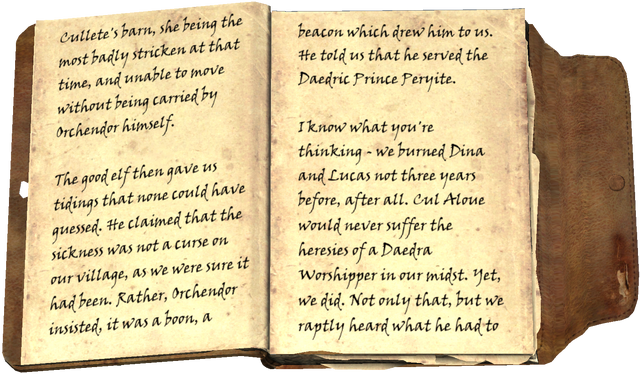 Cullete's barn, she being the
most badly stricken at that
time, and unable to move
without being carried by
Orchendor himself.
The good elf then gave us
tidings that none could have
guessed. He claimed that the
sickness was not a curse on
our village, as we were sure it
had been. Rather, Orchendor
insisted, it was a boon, a
beacon which drew him to us.
He told us that he served the
Daedric Prince Peryite.
I know what you're
thinking - we burned Dina
and Lucas not three years
before, after all. Cul Aloue
would never suffer the
heresies of a Daedra
Worshipper in our midst. Yet,
we did. Not only that, but we
raptly heard what he had to